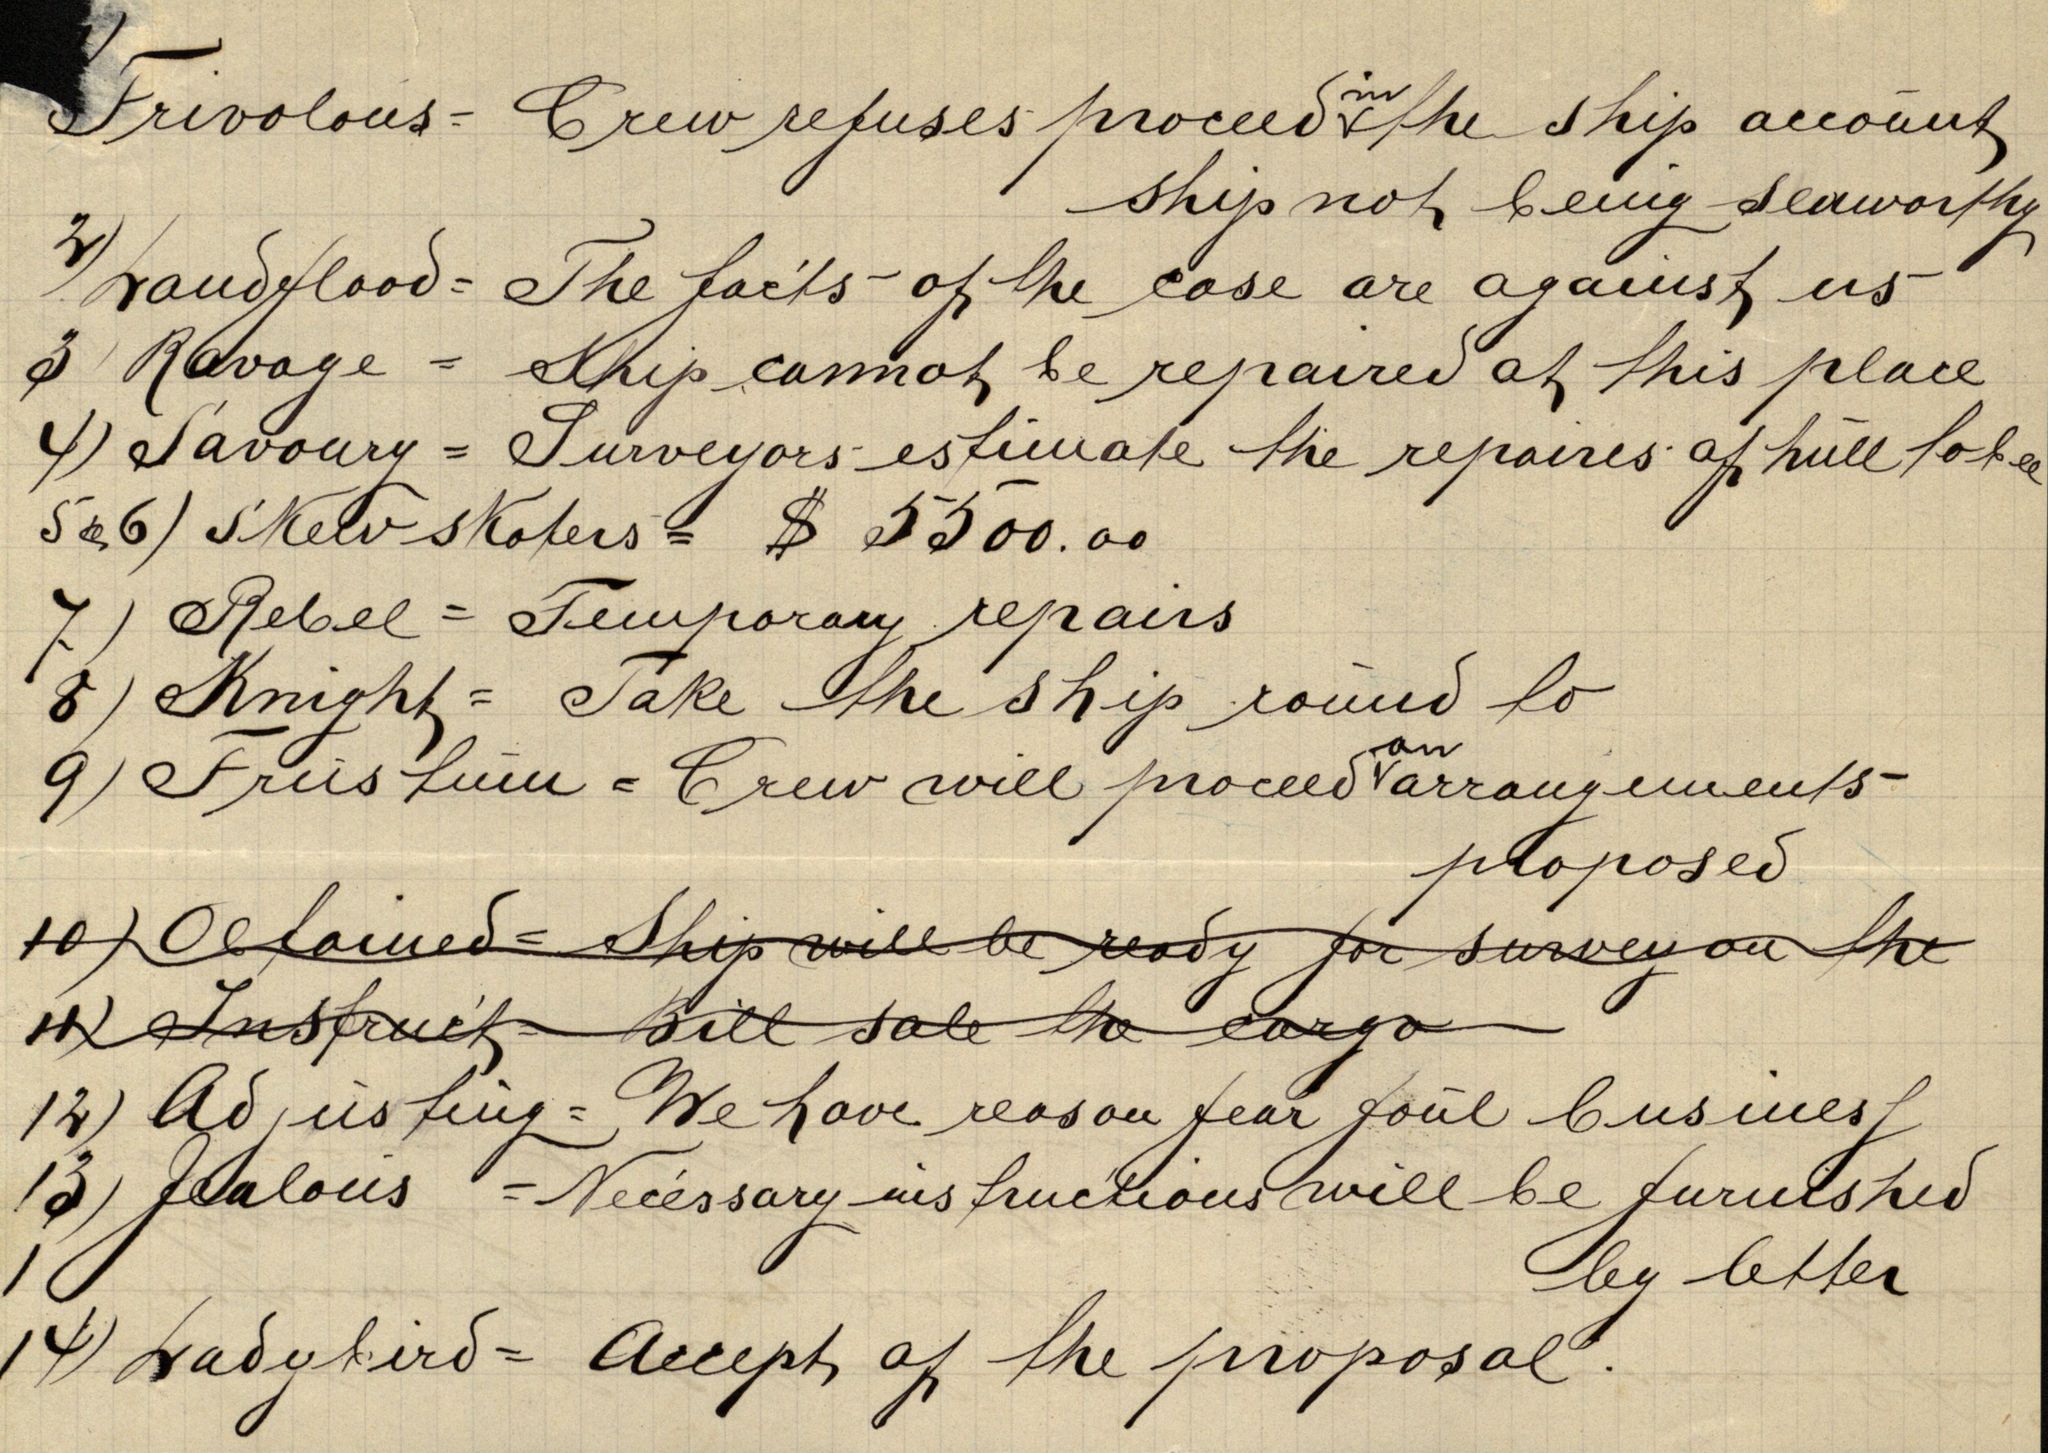 Frivolous = Crew refuses proceed in the ship account
ship not being seaworthy
2) Landflood = The facts of the case are against us
3) Ravage = Ship cannot be repaired at this place
4) Savoury = Surveyors estimate the repaires of hull to bee
5 & 6) Skew skaters = $ 5500.00
7) Rebel = Temporary repairs
8) Knight = Take the ship round to
9) Frustum = Crew will proceed on arrangements
proposed
10) Obtained = Ship will be ready for survey on the
11) Instruct = Bill sale the cargo
12) Adjusting = We have reason fear foul business
13) Jealous = Necessary instructions will be furnished
1 by letter
14) Ladybird = Accept of the proposal.